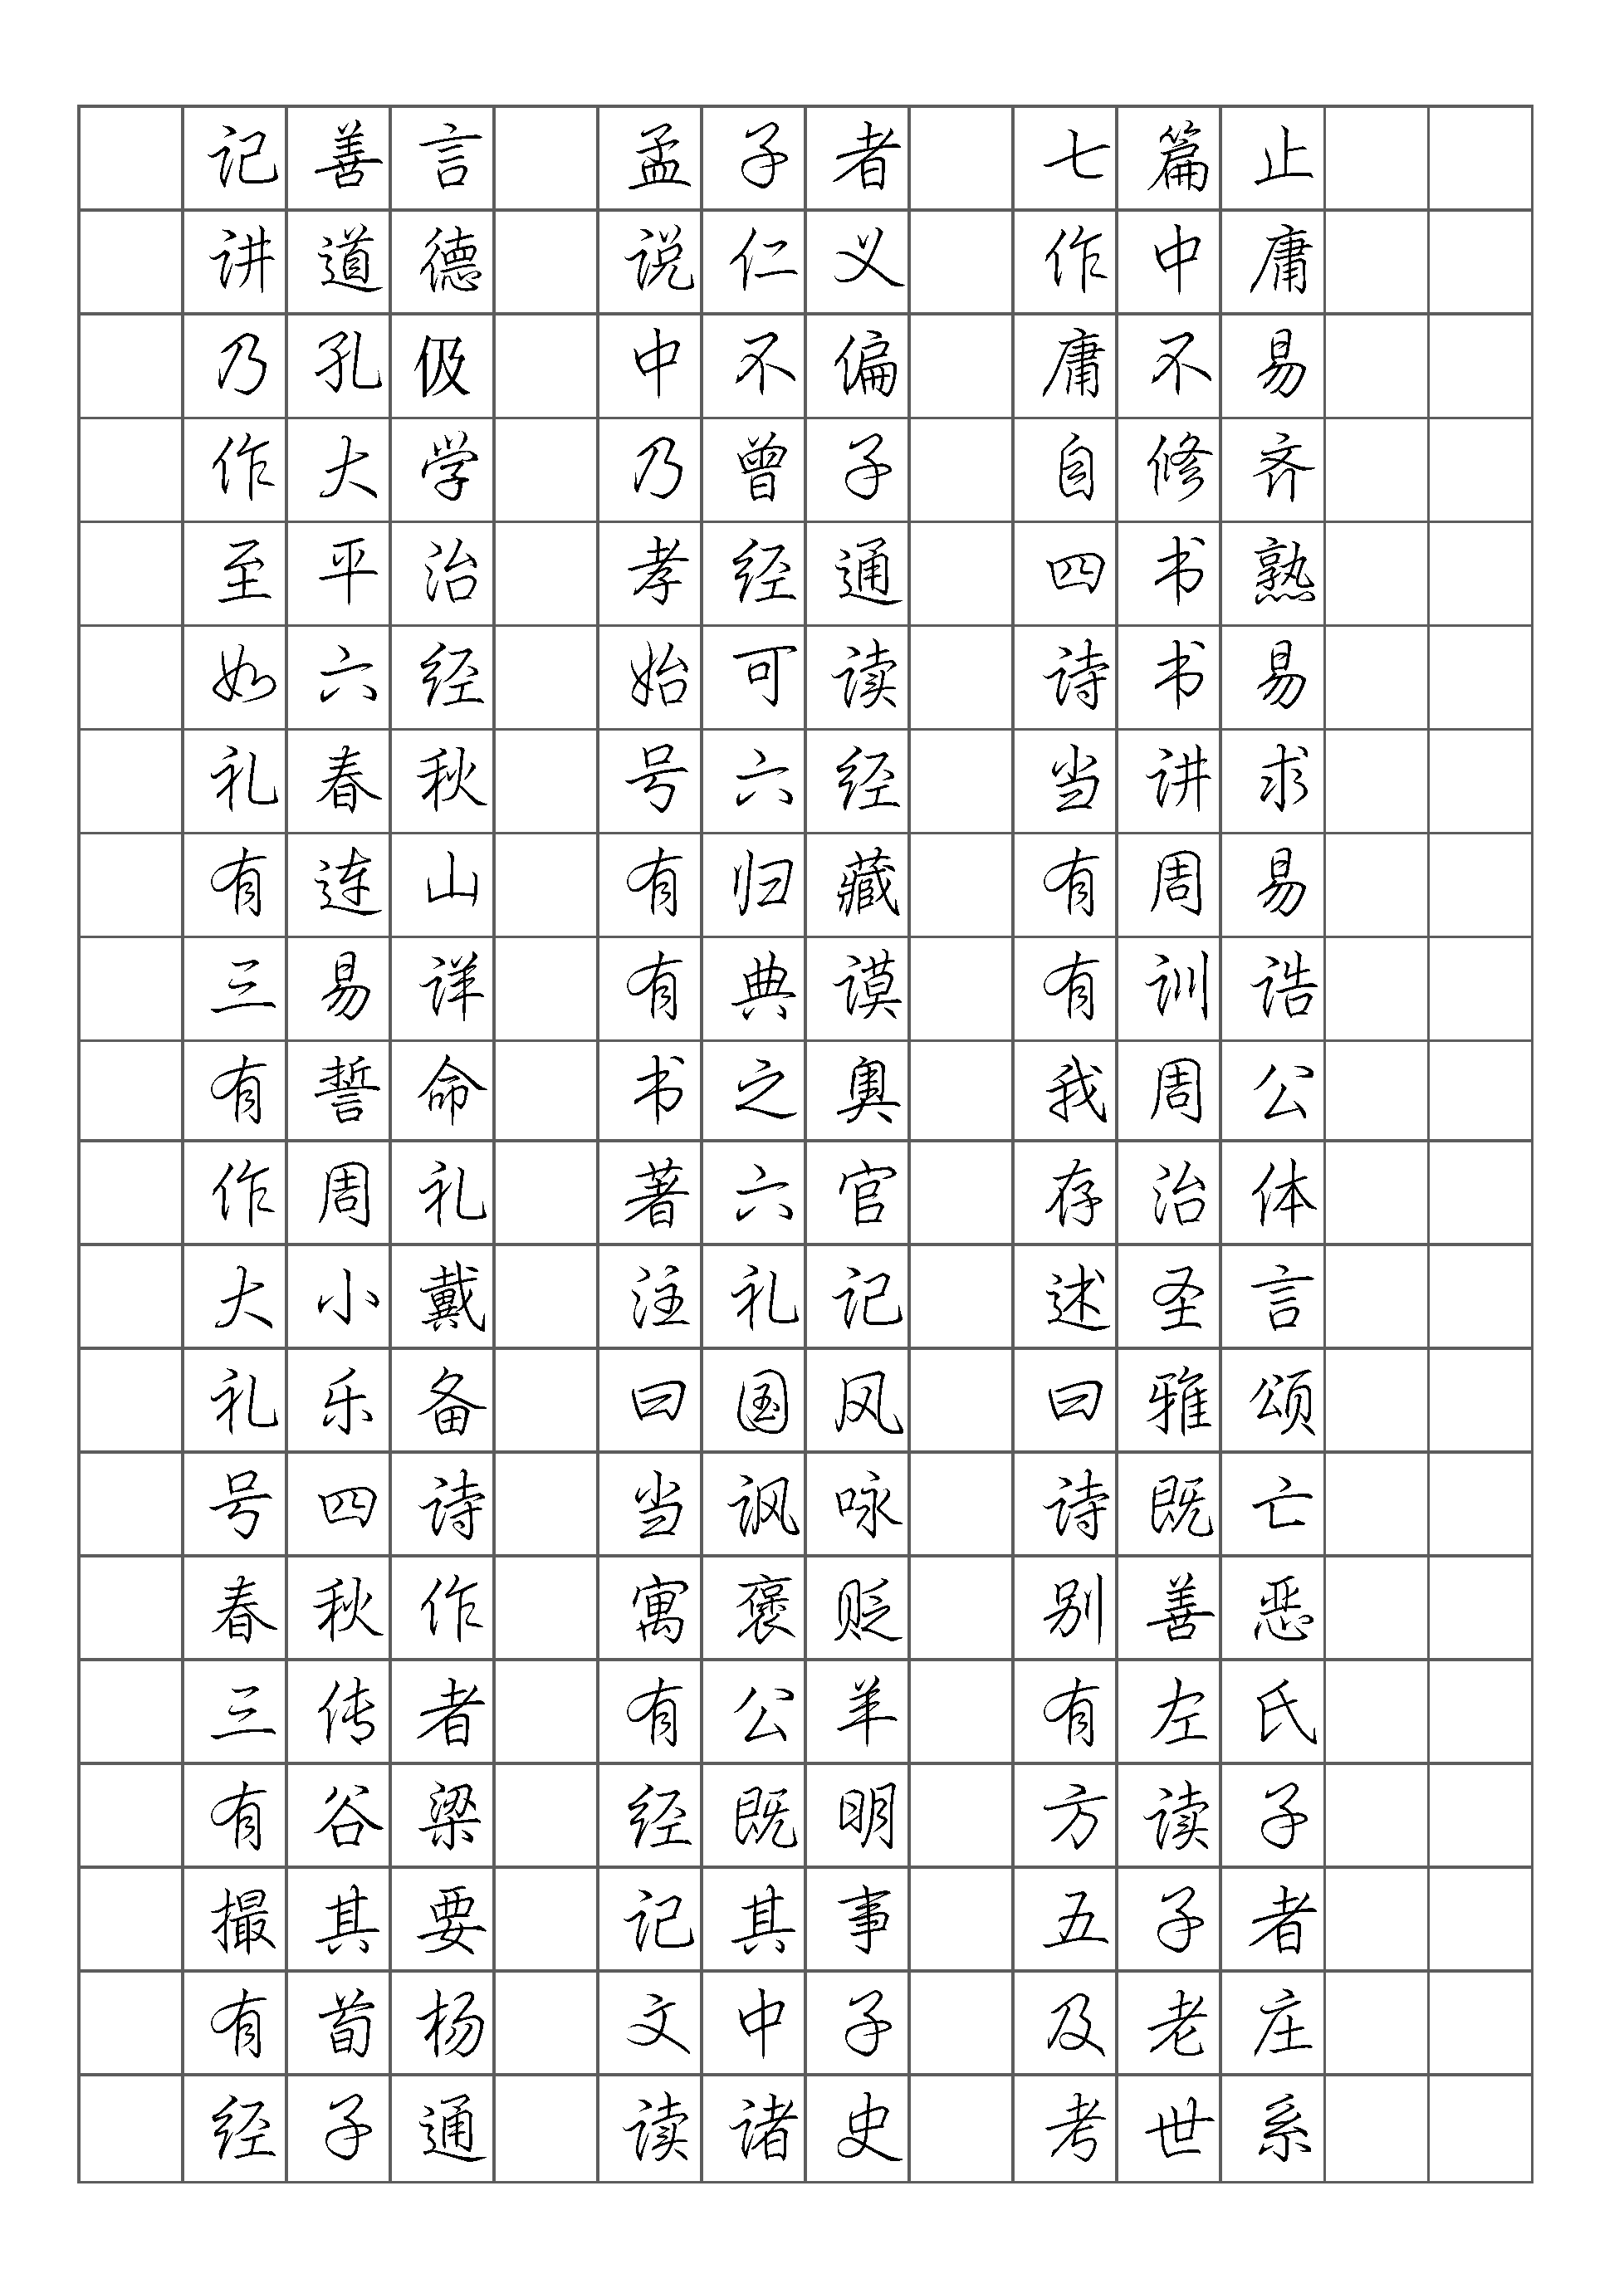 记善言 孟子者 七篇止
讲道德 说仁义 作中庸
乃孔伋 中不偏 庸不易
作大学 乃曾子 自修齐
至平治 孝经通 四书熟
如六经 始可读 诗书易
礼春秋 号六经 当讲求
有连山 有归藏 有周易
三易详 有典谟 有训诰
有誓命 书之奥 我周公
作周礼 著六官 存治体
大小戴 注礼记 述圣言
礼乐备 曰国风 曰雅颂
号四诗 当讽咏 诗既亡
春秋作 寓褒贬 别善恶
三传者 有公羊 有左氏
有谷梁 经既明 方读子
撮其要 记其事 五子者
有荀杨 文中子 及老庄
经子通 读诸史 考世系